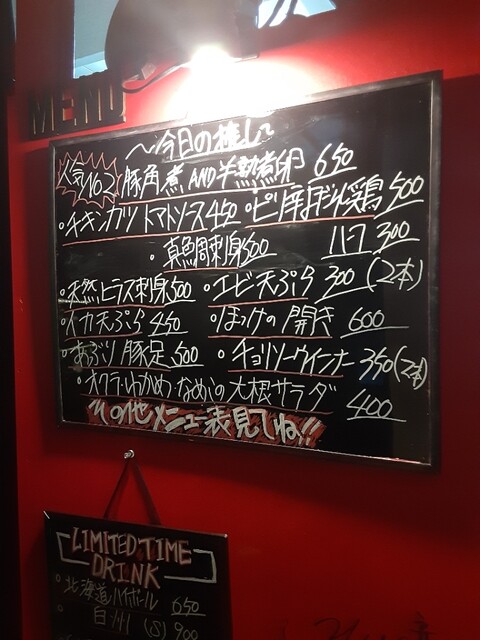 MENU
〜今日の推し〜
人気No.2 豚角煮AND半熟煮卵 650
・チキンカツトマトソース 450 ・ピリ辛よだれ鶏 500
・真鯛刺身 500 ハーフ 300
・天然ヒラス刺身 500 ・エビ天ぷら 300 (2本)
・イカ天ぷら 450 ・ほっけの開き 600
・あぶり豚足 500 ・チョリソーウインナー 350 (2本)
・オクラ・わかめ・なめこの大根サラダ 400
その他メニュー表見てね!!
LIMITED TIME
DRINK
・北海道ハイボール 650
・白州 (S) 900